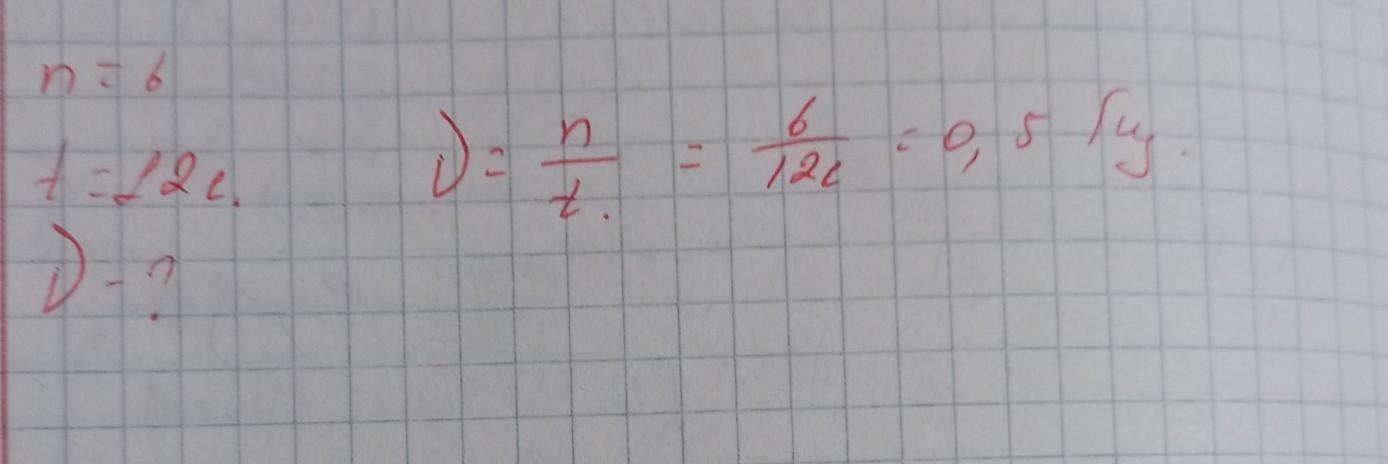 n = 6
t = 12 с.
ν - ?
ν = n/t. = 6/12с = 0,5 Гц.